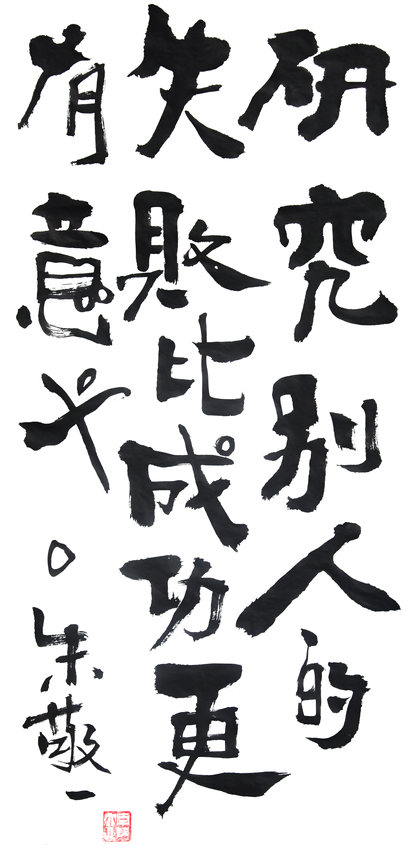 研究别人的
失败比成功更
有意义。朱敬一